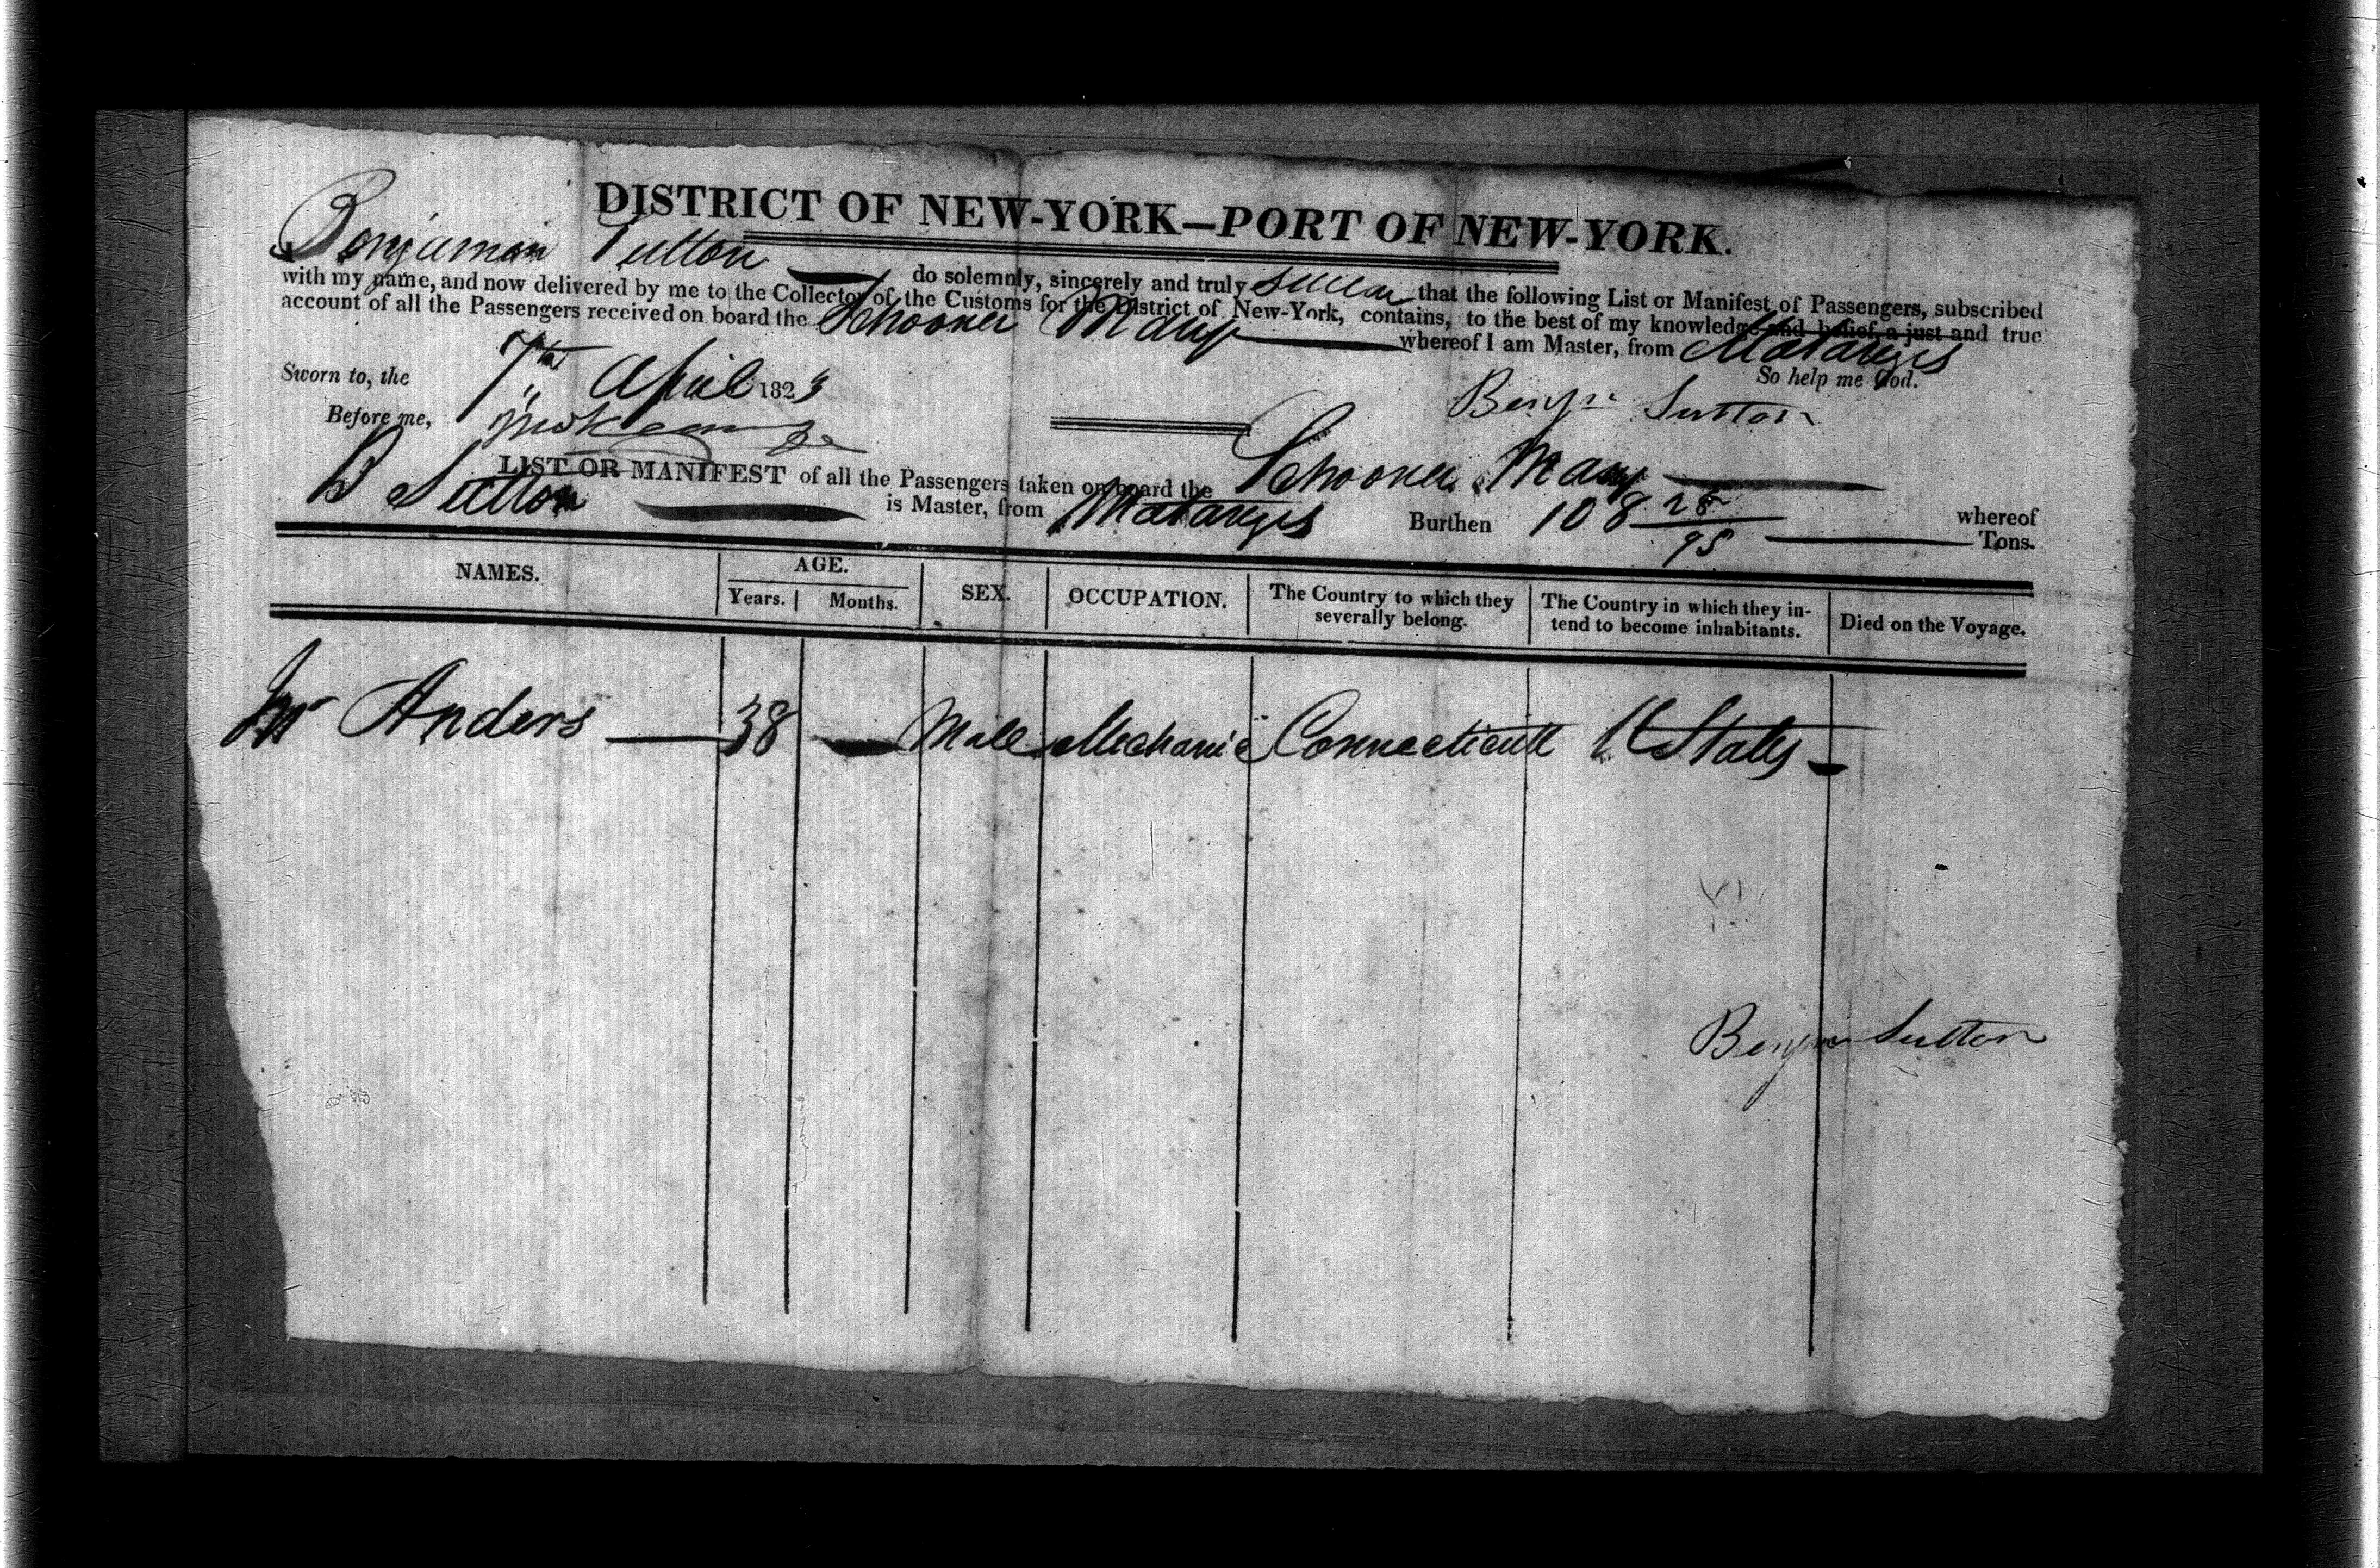 DISTRICT OF NEW-YORK—PORT OF NEW-YORK.
Benjamin Sutton do solemnly, sincerely and truly swear that the following List or Manifest of Passengers, subscribed
with my name, and now delivered by me to the Collector of the Customs for the District of New-York, contains, to the best of my knowledge and belief, a just and true
account of all the Passengers received on board the Schooner Mary whereof I am Master, from Matanzas
So help me God.
Sworn to, the 7th April 1823
Benjn Sutton
Before me,
LIST OR MANIFEST of all the Passengers taken on board the Schooner Mary whereof
B Sutton is Master, from Matanzas Burthen 108 28/95 Tons.
NAMES. AGE. Years. Months. SEX. OCCUPATION. The Country to which they severally belong. The Country in which they intend to become inhabitants. Died on the Voyage.
Mr Anders — 38 — Male Mechanic Connecticutt U States —
Benjn Sutton